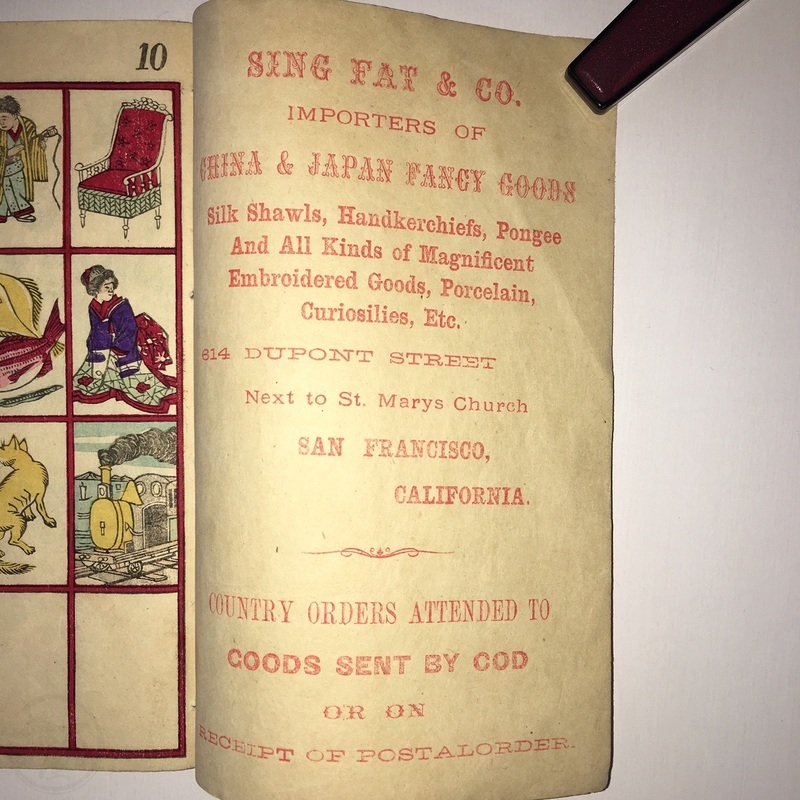 10
SING FAT & CO.
IMPORTERS OF
CHINA & JAPAN FANCY GOODS
Silk Shawls, Handkerchiefs, Pongee
And All Kinds of Magnificent
Embroidered Goods, Porcelain,
Curiosilies, Etc.
614 DUPONT STREET
Next to St. Marys Church
SAN FRANCISCO,
CALIFORNIA.
COUNTRY ORDERS ATTENDED TO
GOODS SENT BY COD
OR ON
RECEIPT OF POSTALORDER.